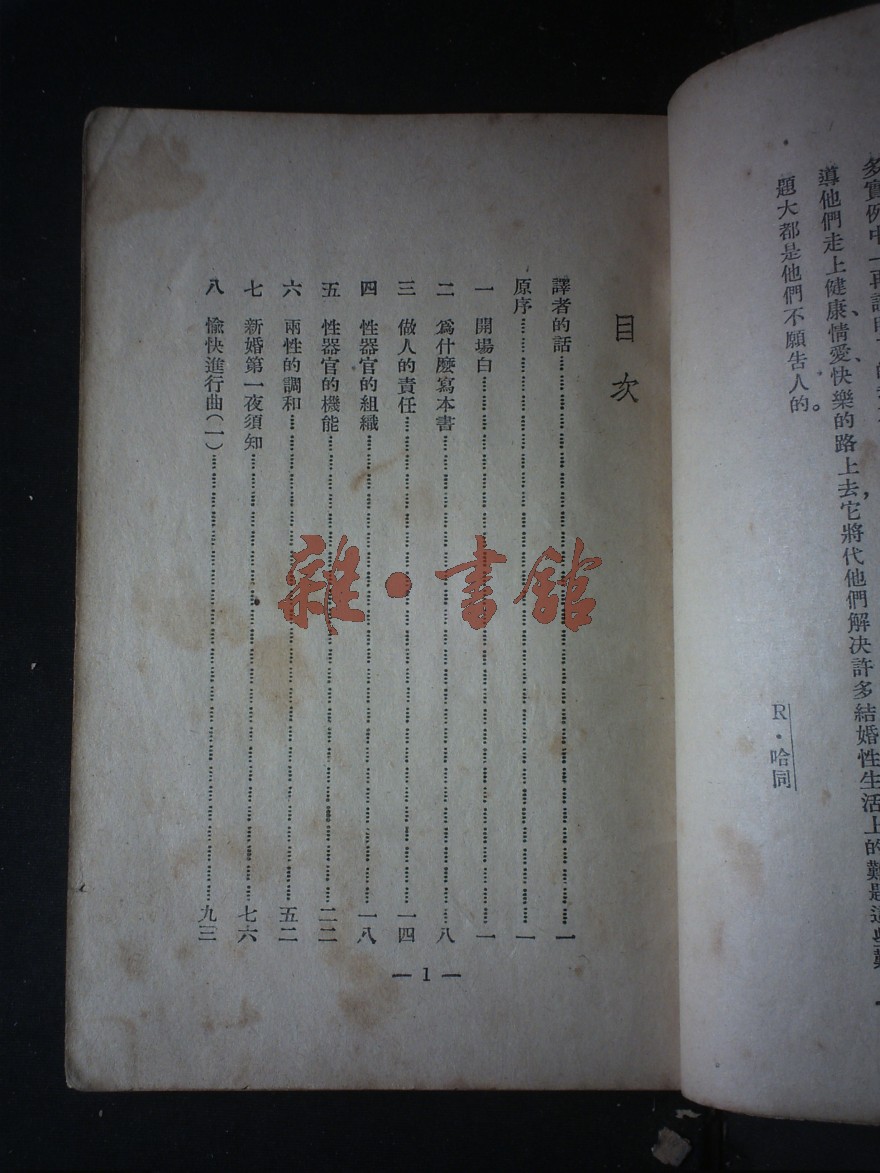 導他們走上健康、情愛、快樂的路上去，它將代他們解決許多結婚性生活上的難題這些難
題大都是他們不願告人的。
R·哈同
目次
譯者的話 一
原序 一
一 開場白 一
二 爲什麼寫本書 八
三 做人的責任 一四
四 性器官的組織 一八
五 性器官的機能 二二
六 兩性的調和 五二
七 新婚第一夜須知 七六
八 愉快進行曲（一） 九三
— 1 —
雜·書館